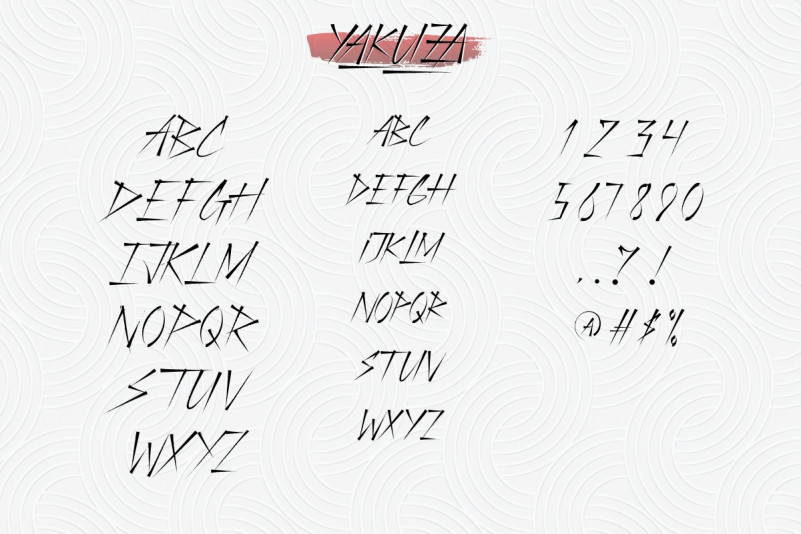 YAKUZA
ABC
DEFGH
IJKLM
NOPQR
STUV
WXYZ
ABC
DEFGH
iJKLM
NOPQR
STUV
WXYZ
1 2 3 4
5 6 7 8 9 0
, . . ? !
@ # $ %